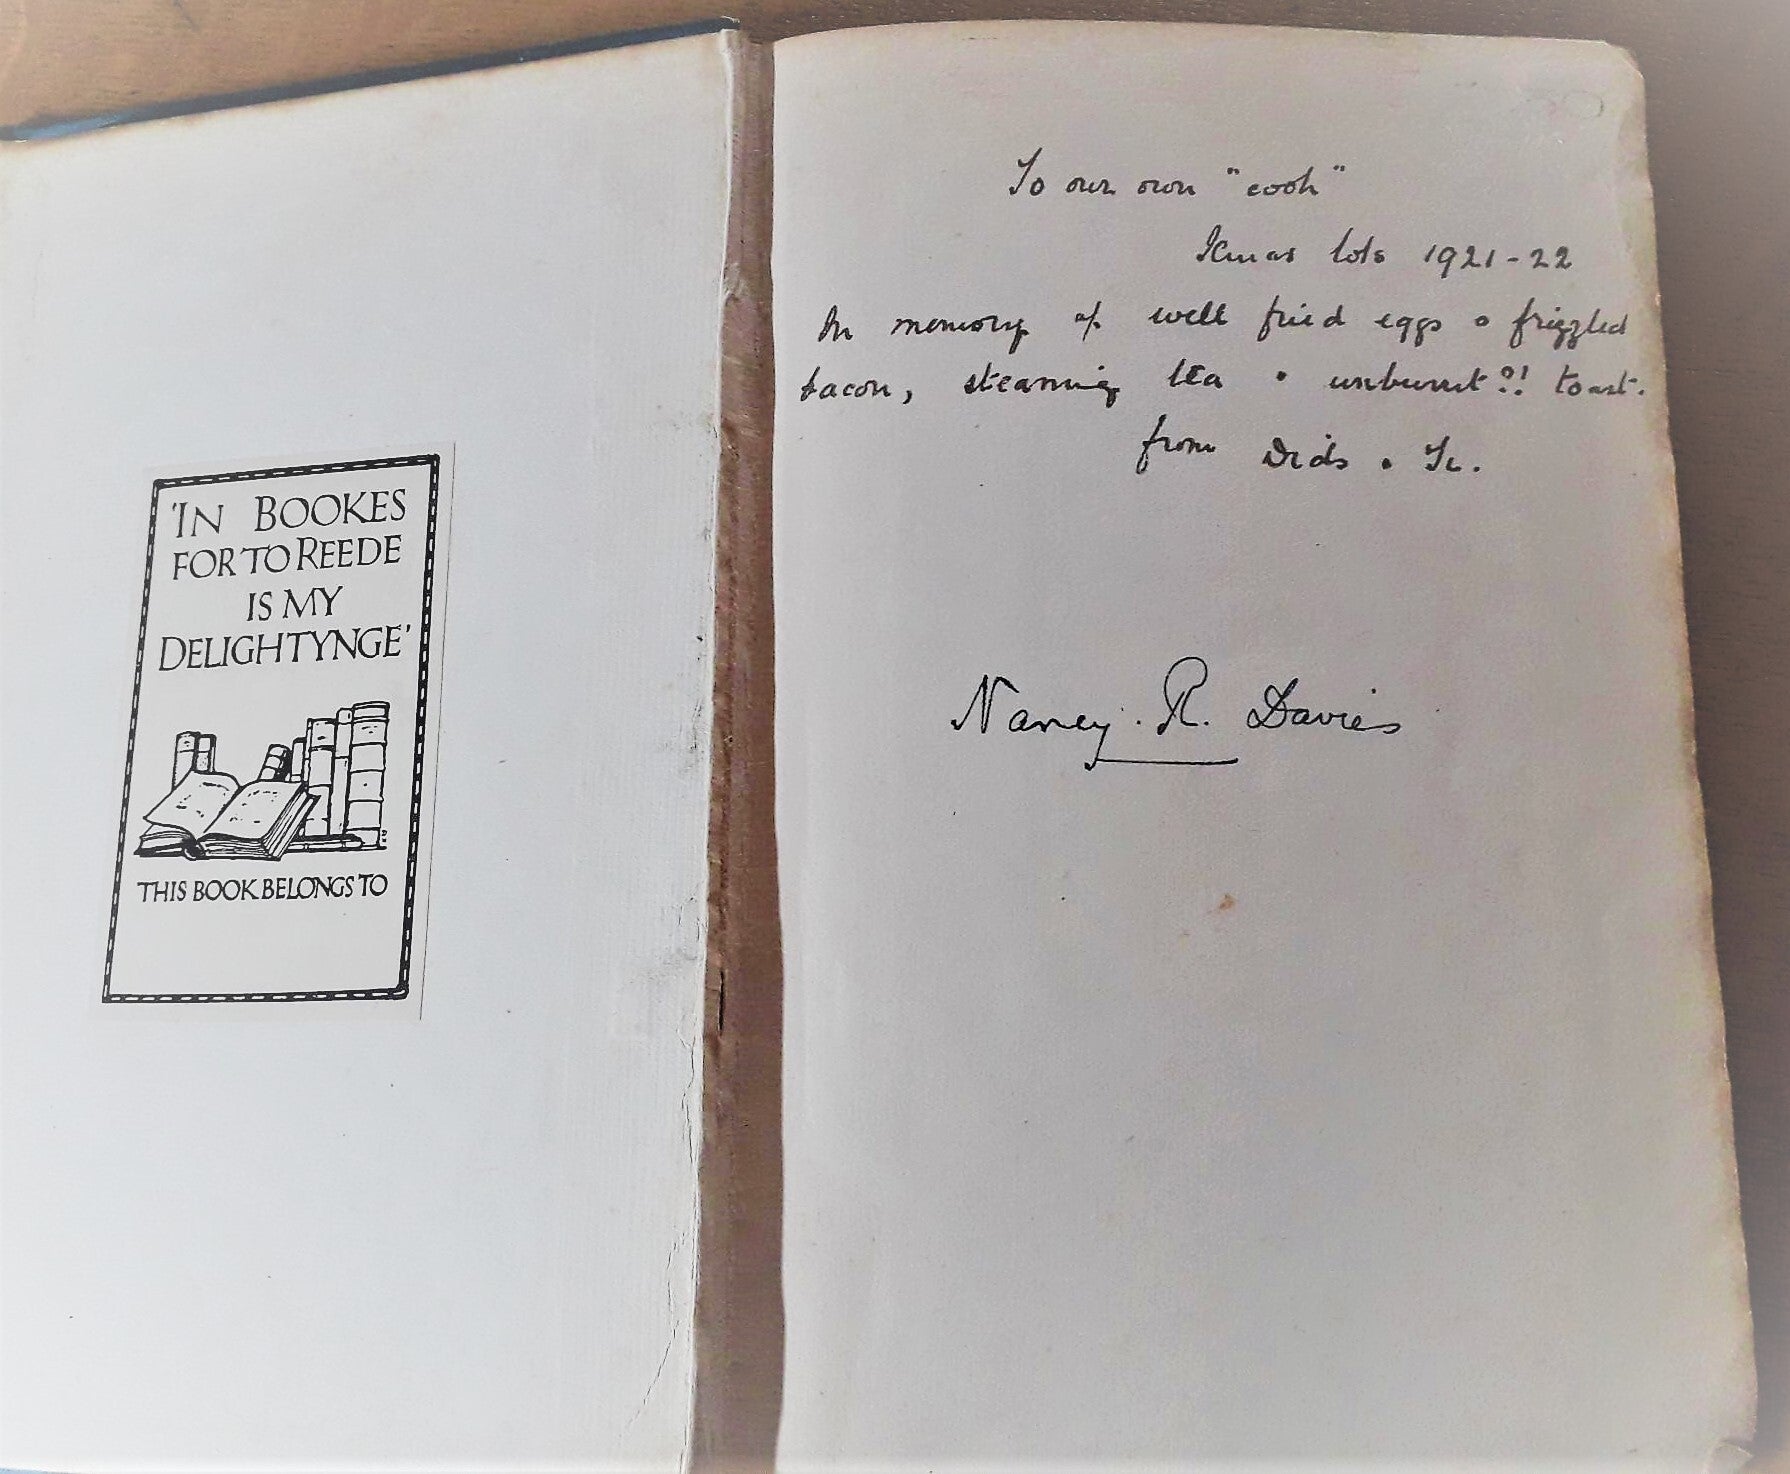 'IN BOOKES
FOR TO REEDE
IS MY
DELIGHTYNGE'
THIS BOOK BELONGS TO
To our own "cook"
Xmas hols 1921-22
In memory of well fried eggs & frizzled
bacon, steaming tea & unburnt?! toast.
from Dids &
Nancy. R. Davies